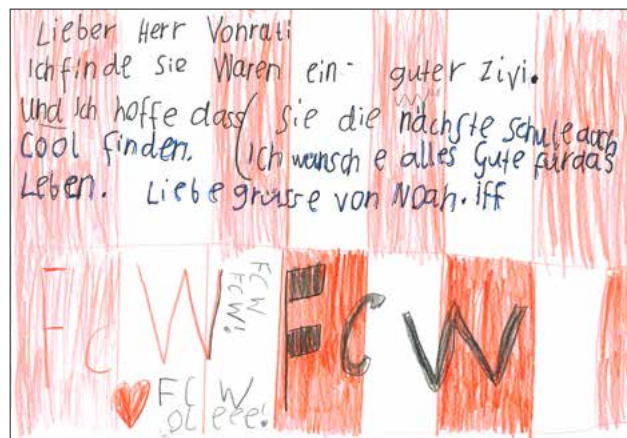 Lieber Herr Vonrati
Ich finde sie Waren ein guter Zivi.
Und Ich hoffe dass sie die nächste schule auch
Cool finden. Ich wünsche alles Gute für das
Leben. Liebe grüsse von Noah. Iff
FCW
FCW
FCW!
FCW
FCW
oLeeee!